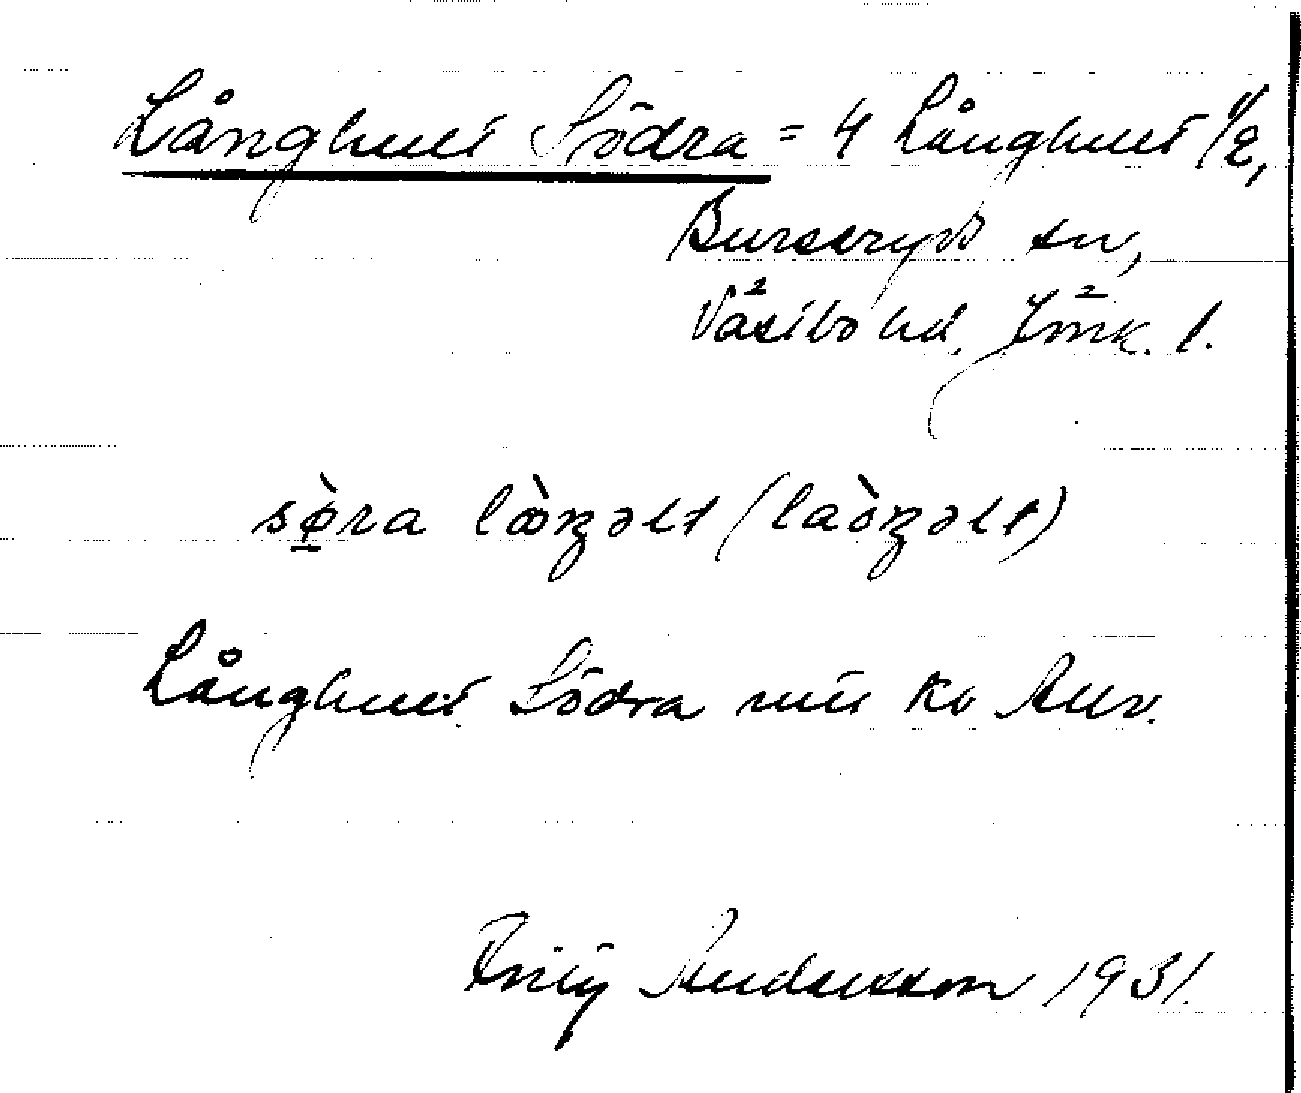 Långhult Södra = 4 Långhult 1/2,
Burseryds sn,
Västbo hd. Jönk. l.
sø̀ra lòŋəlt (laòŋəlt)
Långhult Södra mtl ko
Andersson 1931.